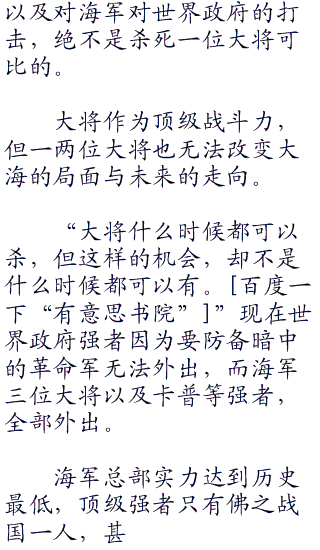 以及对海军对世界政府的打
击，绝不是杀死一位大将可
比的。
大将作为顶级战斗力，
但一两位大将也无法改变大
海的局面与未来的走向。
“大将什么时候都可以
杀，但这样的机会，却不是
什么时候都可以有。[百度一
下“有意思书院”]”现在世
界政府强者因为要防备暗中
的革命军无法外出，而海军
三位大将以及卡普等强者，
全部外出。
海军总部实力达到历史
最低，顶级强者只有佛之战
国一人，甚